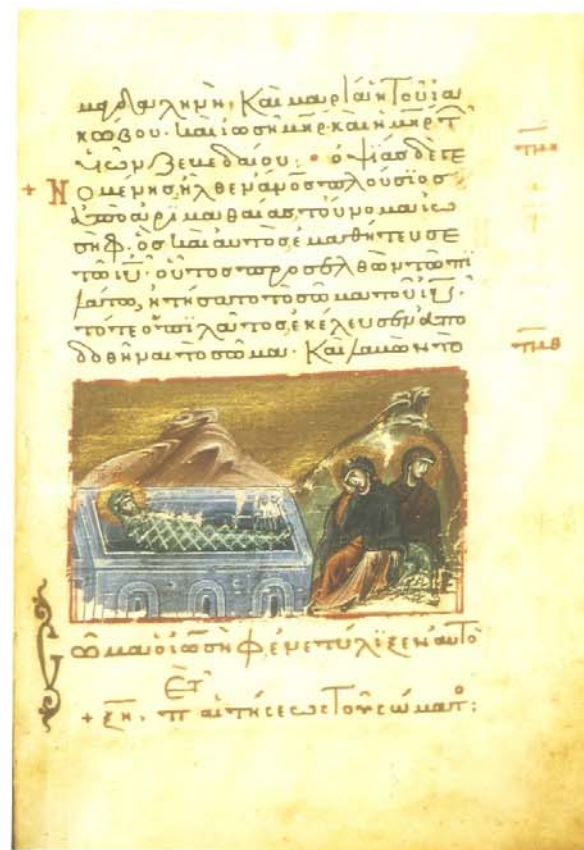 μαγδαληνή, Καὶ μαρία ἡ τοῦ ἰα
κώβου· καὶ ἰωσῆ μηρ καὶ ἡ μηρ τ
υἱῶν Ζεβεδαίου: ὀψίας δὲ γε
+ Νομένης ἦλθεν ἀνος πλούσιος
ἀπὸ ἀριμαθαίας, τοὔνομα ἰω
σήφ· ὃς καὶ αὐτὸς ἐμαθήτευσε
τῶ ιυ· οὗτος προσελθὼν τῶ πι
λάτω, ἠτήσατο τὸ σῶμα τοῦ ιυ·
τότε ὁ πιλάτος, ἐκέλευσεν ἀπο
δοθῆναι τὸ σῶμα· Καὶ λαβὼν τὸ
τμη
τμθ
σῶμα ὁ ἰωσὴφ ἐνετύλιξεν αὐτὸ
+ ξη, π αἰτήσεως τοῦ σώματ: